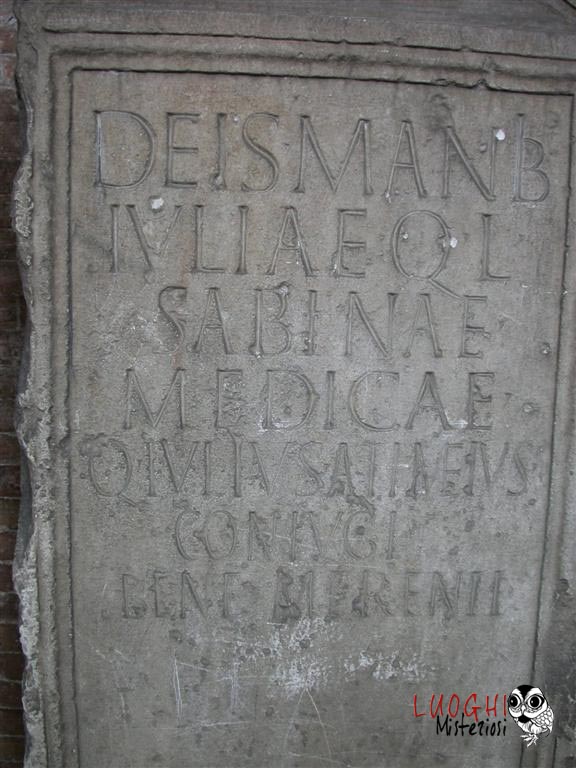 DEISMANIB
IVLIAE Q L
SABINAE
MEDICAE
Q IVLIVS ATIMETVS
CONIVGI
BENE MERENTI
LUOGHI
Misteriosi